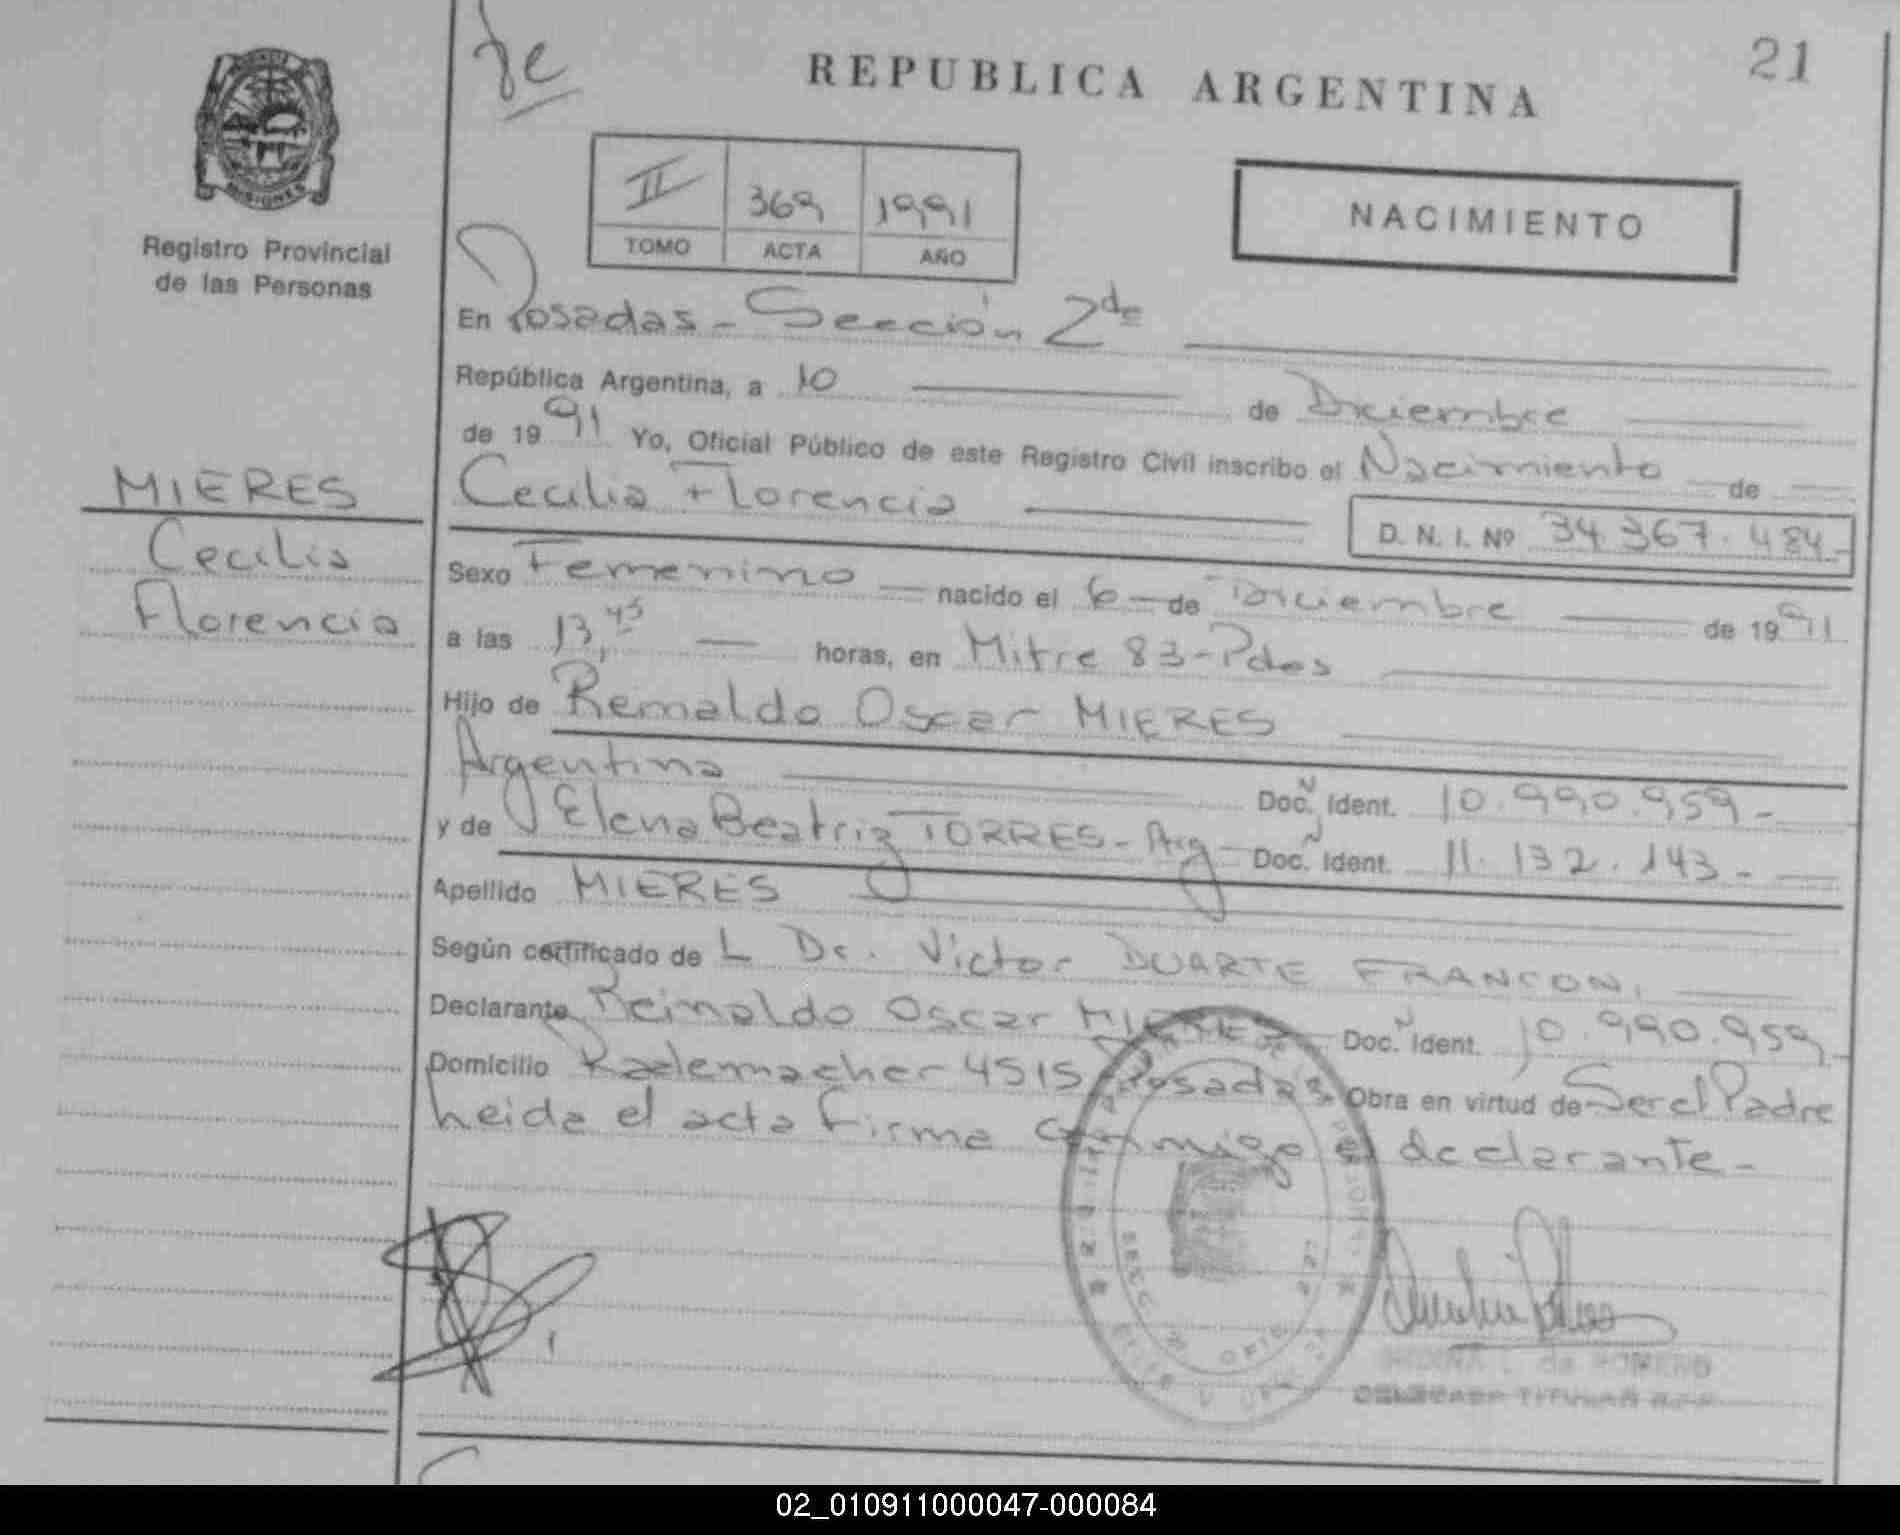 21
REPUBLICA ARGENTINA
MISIONES
Registro Provincial
de las Personas
II 369 1991
TOMO ACTA AÑO
NACIMIENTO
MIERES
Cecilia
Florencia
En Posadas - Sección 2da
República Argentina, a 10 de Diciembre
de 1991 Yo, Oficial Público de este Registro Civil inscribo el Nacimiento de
Cecilia Florencia D. N. I. Nº 34.367.484.-
Sexo Femenino nacido el 6 de Diciembre de 1991
a las 13,45 horas, en Mitre 83-Pdas
Hijo de Reinaldo Oscar MIERES
Argentina Doc. Ident. 10.990.959-
y de Elena Beatriz TORRES - Arg Doc. Ident. 11.132.143-
Apellido MIERES
Según certificado de L Dr. Victor DUARTE FRANCON,
Declarante Reinaldo Oscar MIERES Doc. Ident. 10.990.959
Domicilio Rademacher 4515 Posadas Obra en virtud de Ser el Padre
heida el acta firma conmigo el declarante-
L. de ROMERO
TITULAR
02_010911000047-000084